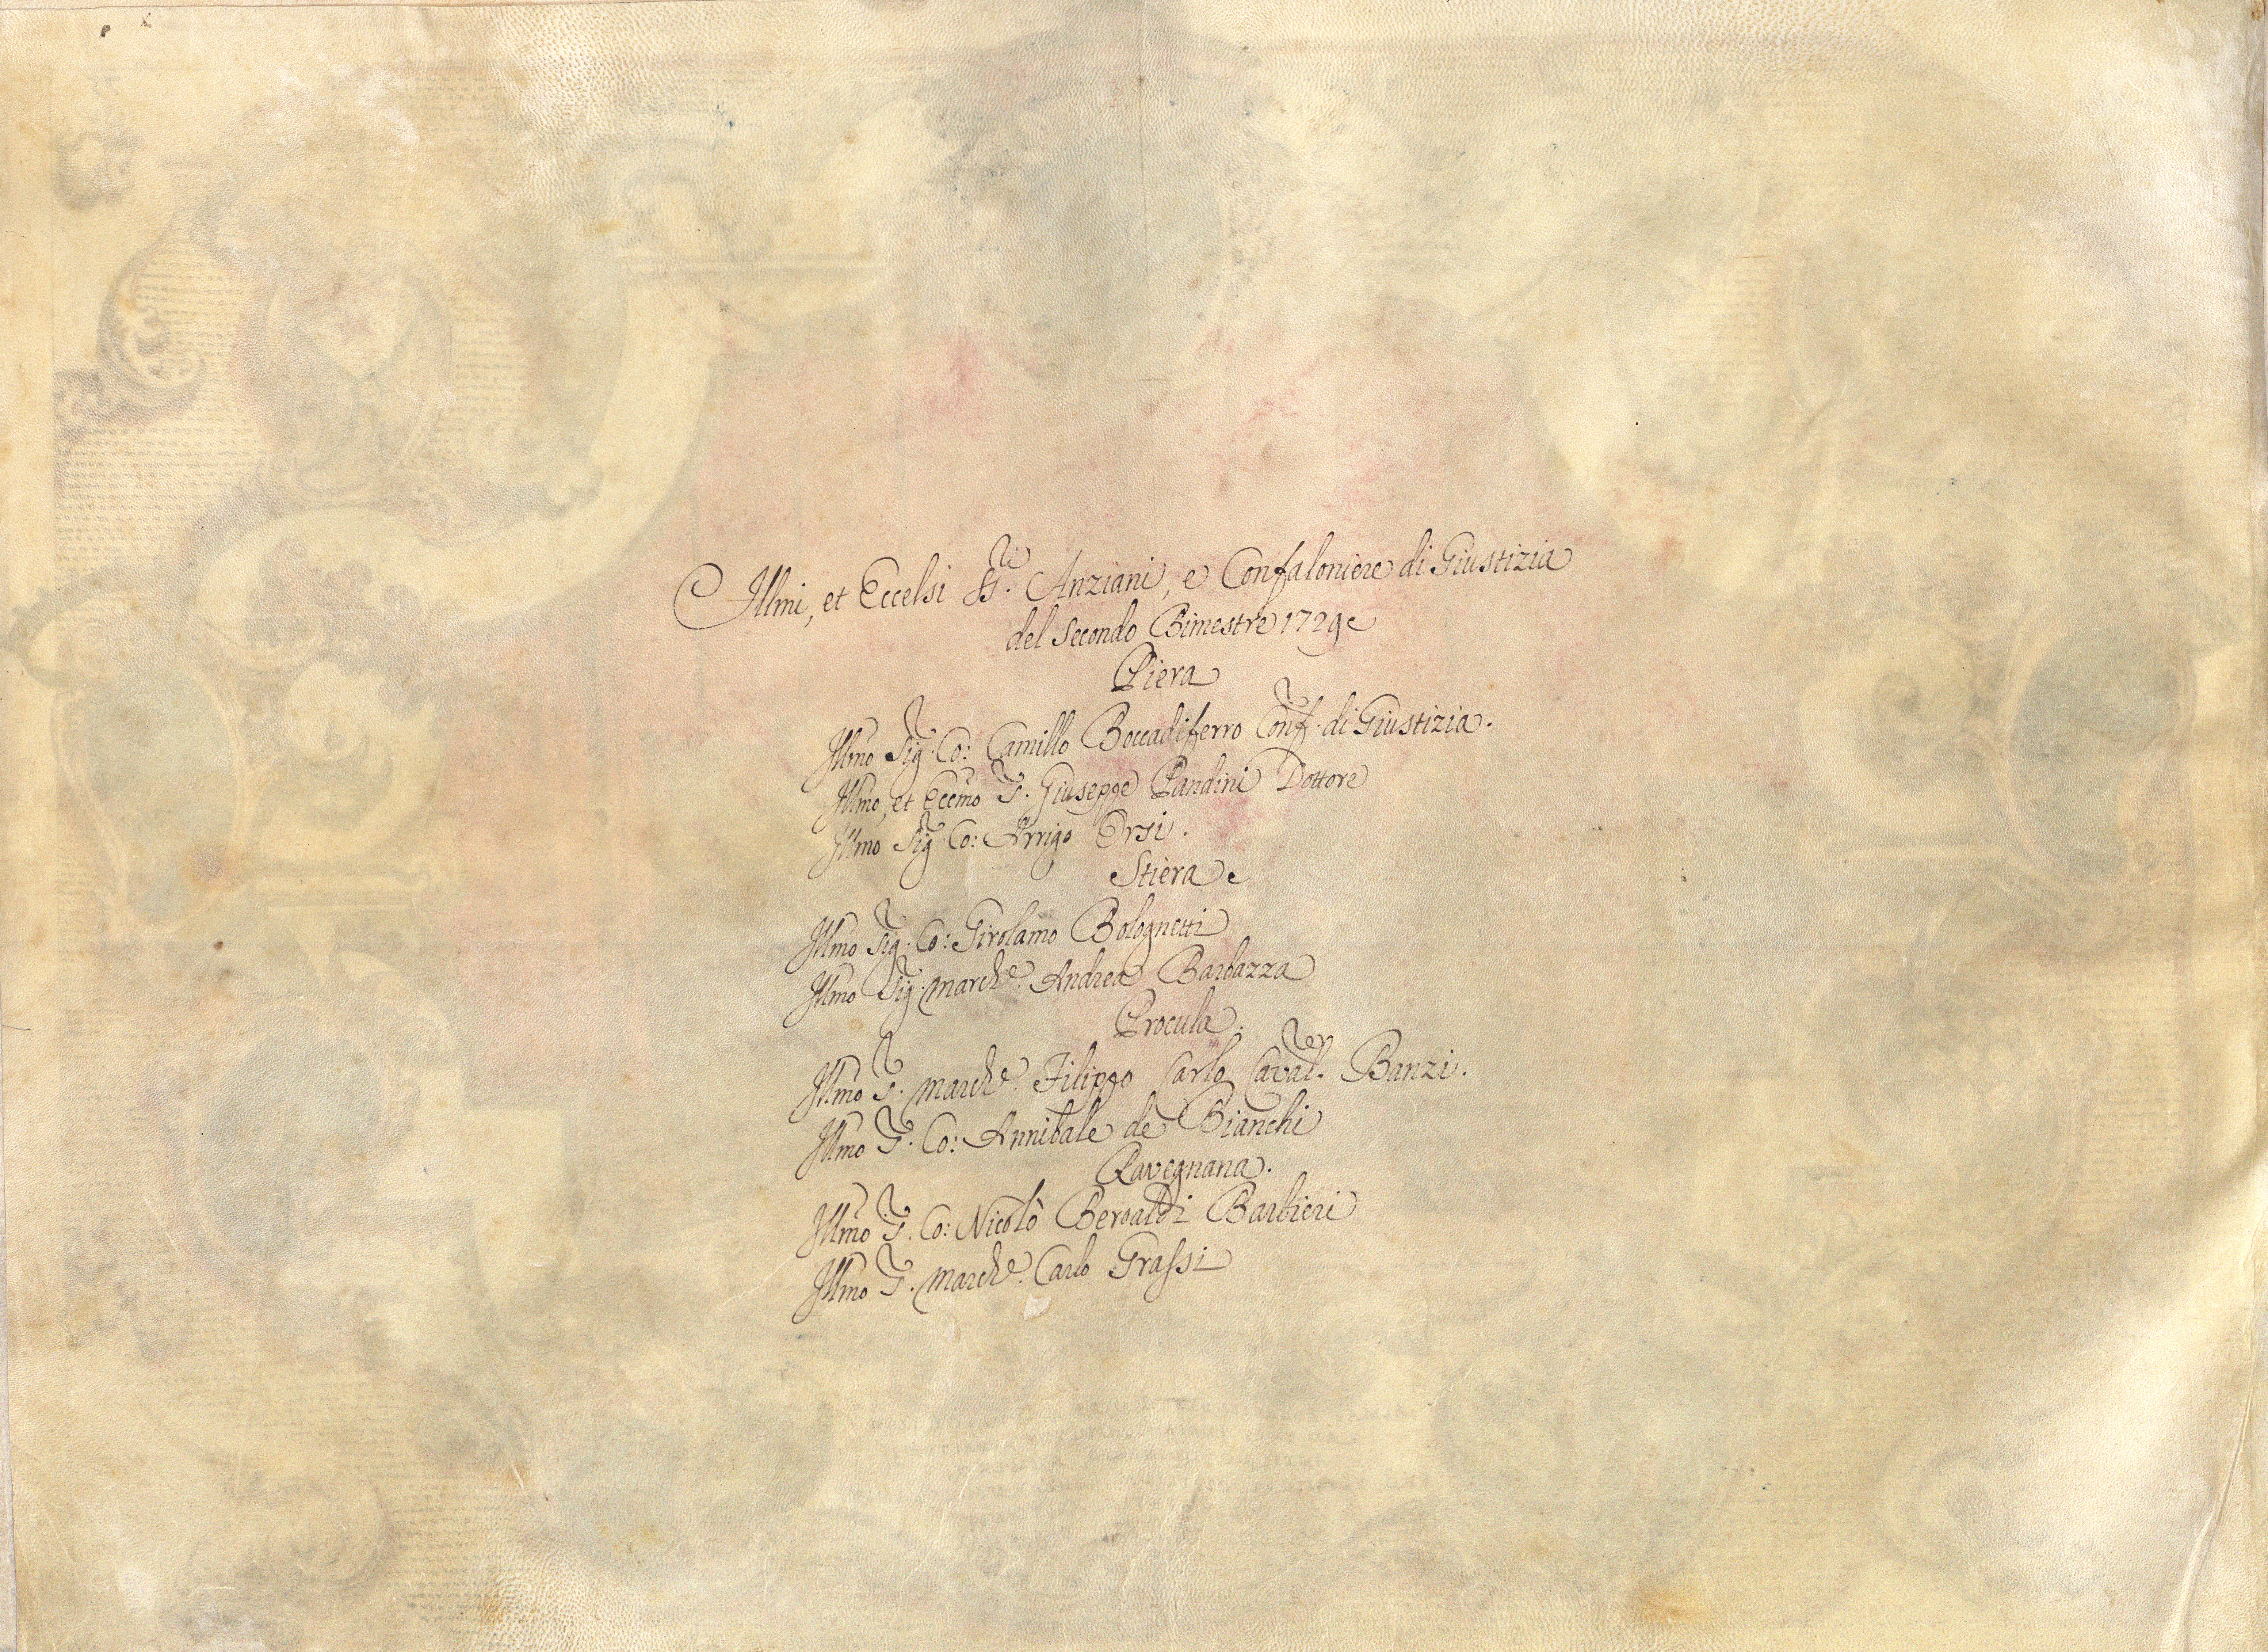 Illmi, et Eccelsi SS.ri Anziani, e Confaloniere di Giustizia
del Secondo Bimestre 1729
Piera
Illmo Sig.r Co: Camillo Boccadiferro Conf.r di Giustizia.
Illmo, et Eccmo S.r Giuseppe Pandini Dottore
Illmo Sig.r Co: Arrigo Orsi.
Stiera
Illmo Sig.r Co: Girolamo Bolognetti
Illmo Sig.r March.e Andrea Barbazza
Procula.
Illmo S.r March.e Filippo Carlo Caval.er Banzi.
Illmo S.r Co: Annibale de Bianchi
Ravegnana.
Illmo S.r Co: Nicolò Beroaldi Barbieri
Illmo S.r March.e Carlo Grassi